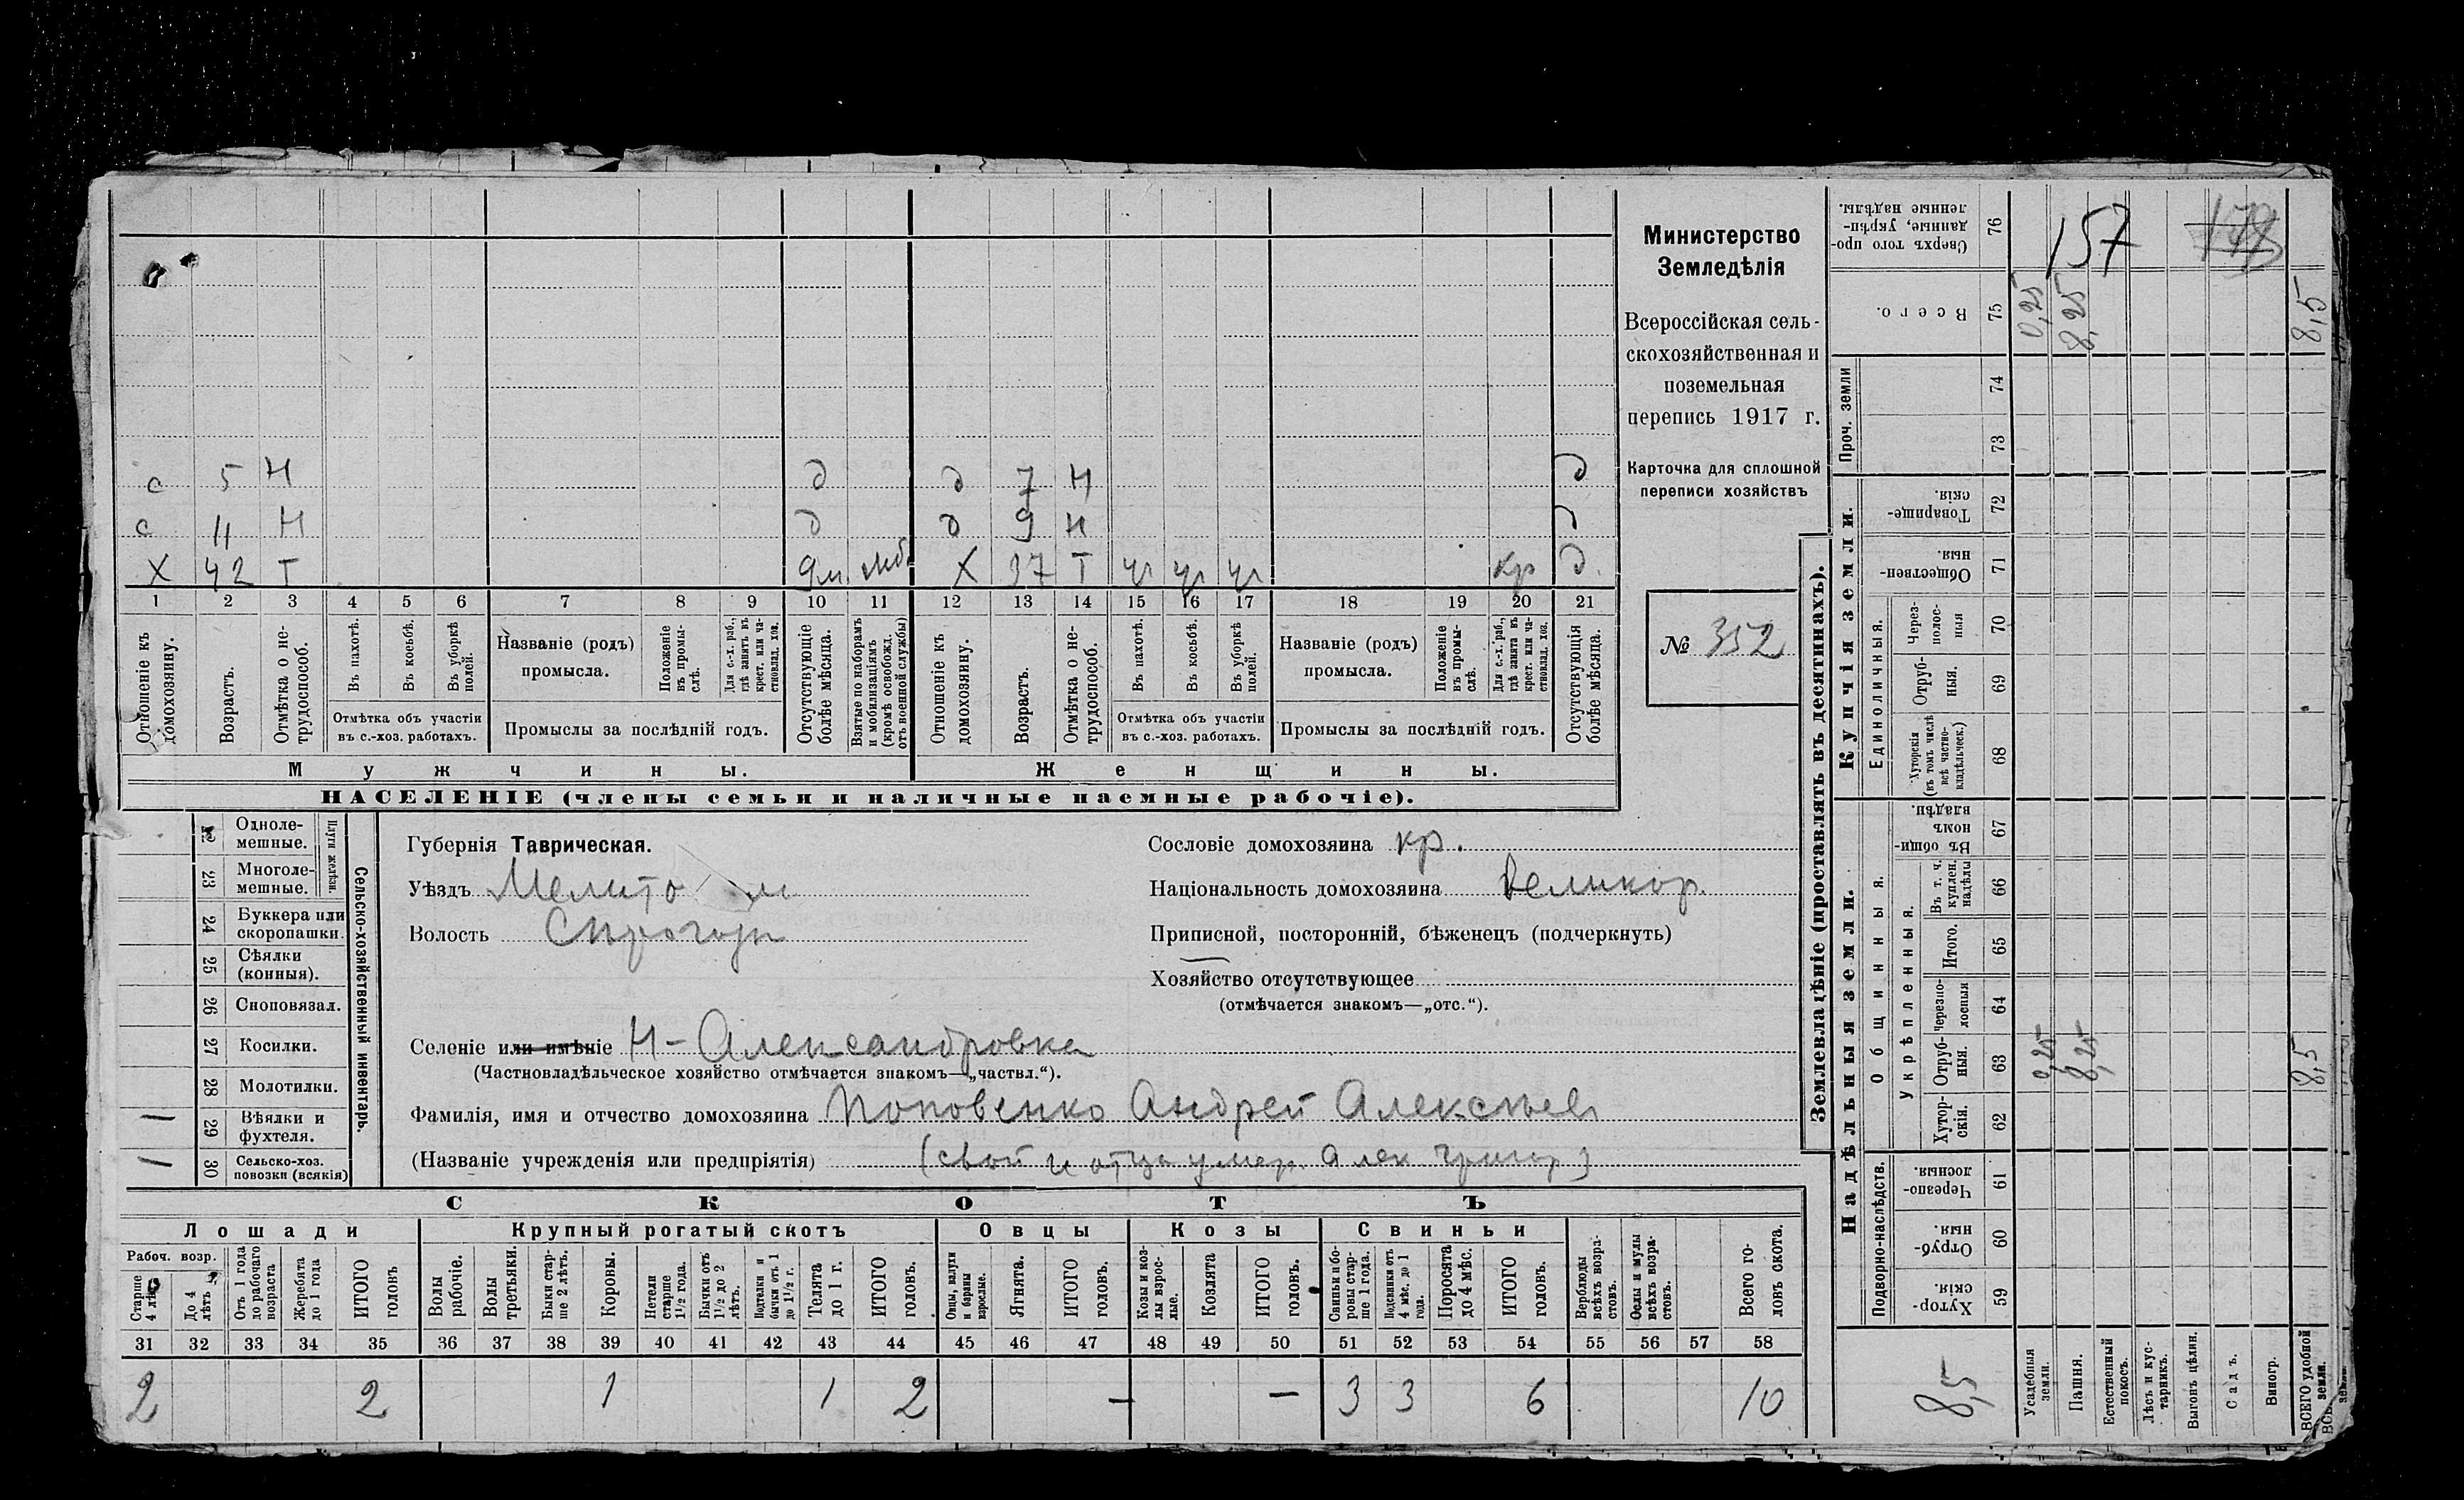 с 5 Н д д 7 Н д
с 11 Н д д 9 Н д
Х 42 Т Х 37 Т уч уч уч кр д.
1 2 3 4 5 6 7 8 9 10 11 12 13 14 15 16 17 18 19 20 21
Отношеніе къ домохозяину.
Возрастъ.
Отмѣтка о нетрудоспособ.
Въ пахотѣ.
Въ косьбѣ.
Въ уборкѣ полей.
Отмѣтка объ участіи
въ с.-хоз. работахъ.
Названіе (родъ)
промысла.
Положеніе въ промыслѣ.
Для с.-х. раб., гдѣ занятъ въ крест. или частновлад. хоз.
Промыслы за послѣдній годъ.
Отсутствующіе болѣе мѣсяца.
Взятые по наборамъ и мобилизаціямъ (кромѣ освобожд. отъ военной службы)
Отношеніе къ домохозяину.
Возрастъ.
Отмѣтка о нетрудоспособ.
Въ пахотѣ.
Въ косьбѣ.
Въ уборкѣ полей.
Отмѣтка объ участіи
въ с.-хоз. работахъ.
Названіе (родъ)
промысла.
Положеніе въ промыслѣ.
Для с.-х. раб., гдѣ занята въ крест. или частновлад. хоз.
Промыслы за послѣдній годъ.
Отсутствующія болѣе мѣсяца.
Мужчины.
Женщины.
НАСЕЛЕНІЕ (члены семьи и наличные наемные рабочіе).
Министерство
Земледѣлія
Всероссійская сель-
скохозяйственная и
поземельная
перепись 1917 г.
Карточка для сплошной
переписи хозяйствъ
№ 352
Сельско-хозяйственный инвентарь.
Плуги желѣзн.
Одноле-
мешные.
23 Многоле-
мешные.
24 Буккера или
скоропашки.
25 Сѣялки
(конныя).
26 Сноповязал.
27 Косилки.
28 Молотилки.
29 Вѣялки и
фухтеля.
30 Сельско-хоз.
повозки (всякія)
Губернія Таврическая.
Уѣздъ
Волость
Селеніе или имѣніе Н-Александровка
(Частновладѣльческое хозяйство отмѣчается знакомъ—„частвл.“).
Фамилія, имя и отчество домохозяина Поповенко Андрей Алексѣев
(Названіе учрежденія или предпріятія) (свой и отца умер. Алек Григор)
Сословіе домохозяина кр.
Національность домохозяина великор.
Приписной, посторонній, бѣженецъ (подчеркнуть)
Хозяйство отсутствующее
(отмѣчается знакомъ—„отс.“).
СКОТЪ
Лошади Крупный рогатый скотъ Овцы Козы Свиньи
Рабоч. возр.
Старше 4 лѣтъ
До 4 лѣтъ
Отъ 1 года до рабочаго возраста
Жеребята до 1 года
ИТОГО головъ
Волы рабочіе.
Волы третьяки.
Быки старше 2 лѣтъ.
Коровы.
Нетели старше 1 1/2 года.
Бычки отъ 1 1/2 до 2 лѣтъ.
Подтелки и бычки отъ 1 до 1 1/2 г.
Телята до 1 г.
ИТОГО головъ.
Овцы, валухи и бараны взрослые.
Ягнята.
ИТОГО головъ.
Козы и козлы взрослые.
Козлята
ИТОГО головъ.
Свиньи и боровы старше 1 года.
Подсвинки отъ 4 мѣс. до 1 года.
Поросята до 4 мѣс.
ИТОГО головъ.
Верблюды всѣхъ возрастовъ.
Ослы и мулы всѣхъ возрастовъ.
Всего головъ скота.
31 32 33 34 35 36 37 38 39 40 41 42 43 44 45 46 47 48 49 50 51 52 53 54 55 56 57 58
2 2 1 1 2 — — 3 3 6 10
Землевладѣніе (проставлять въ десятинахъ).
Проч. земли
Купчія земли.
Единоличныя.
Надѣльныя земли.
Общинныя.
Укрѣпленныя.
Подворно-наслѣдств.
Сверхъ того проданные, укрѣпленные надѣлы. 76 157 179
Всего. 75 0,25 8,25 8,5
74
73
Товарищескія. 72
Общественныя. 71
Черезполосныя 70
Отрубныя. 69
Хуторскія (въ томъ числѣ всѣ частновладѣльческ.) 68
Въ общинномъ владѣн. 67
Въ т. ч. куплен. надѣлы 66
Итого. 65
Черезполосныя 64
Отрубныя. 63 0,25 8,25 8,5
Хуторскія. 62
Черезполосныя. 61
Отрубныя. 60
Хуторскія. 59
8,5
Усадебныя земли.
Пашня.
Естественный покосъ.
Лѣсъ и кустарникъ.
Выгонъ цѣлин.
Садъ.
Виногр.
ВСЕГО удобной земли.